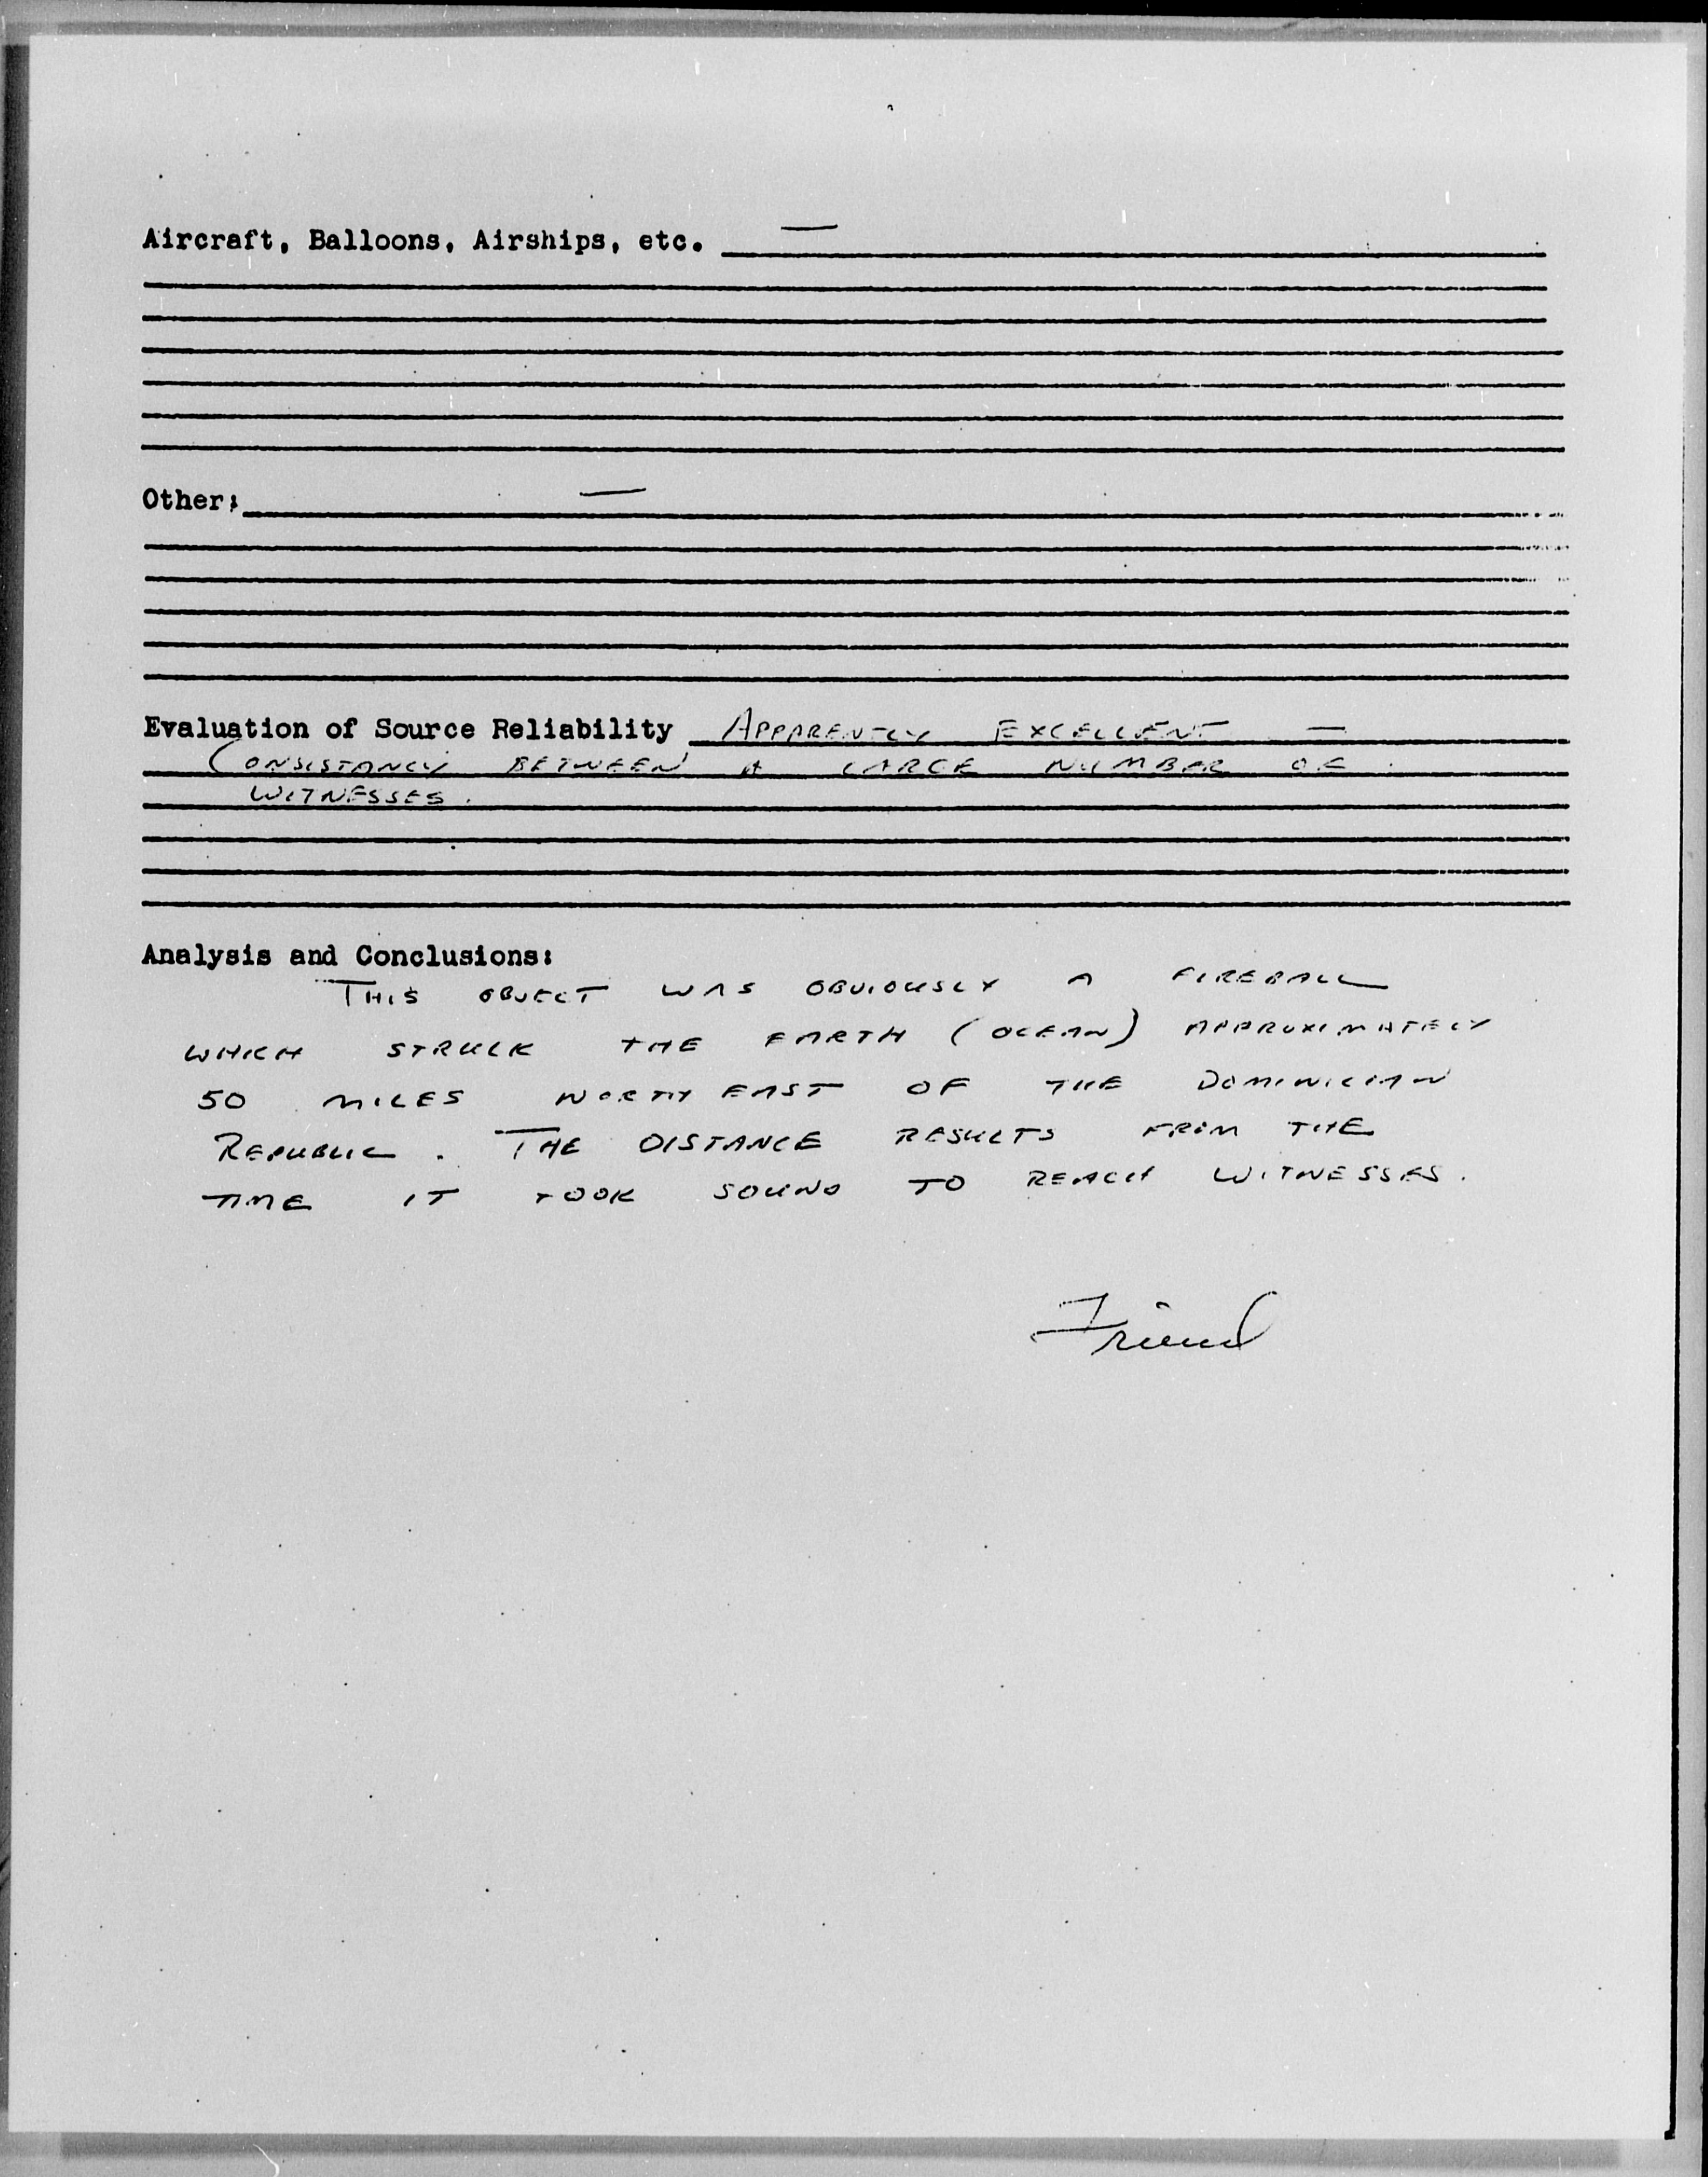 Aircraft, Balloons, Airships, etc. —
Other: —
Evaluation of Source Reliability APPARENTLY EXCELLENT —
CONSISTANCY BETWEEN A LARGE NUMBER OF
WITNESSES.
Analysis and Conclusions:
THIS OBJECT WAS OBVIOUSLY A FIREBALL
WHICH STRUCK THE EARTH (OCEAN) APPROXIMATELY
50 MILES NORTH EAST OF THE DOMINICIAN
REPUBLIC. THE DISTANCE RESULTS FROM THE
TIME IT TOOK SOUND TO REACH WITNESSES.
Friend